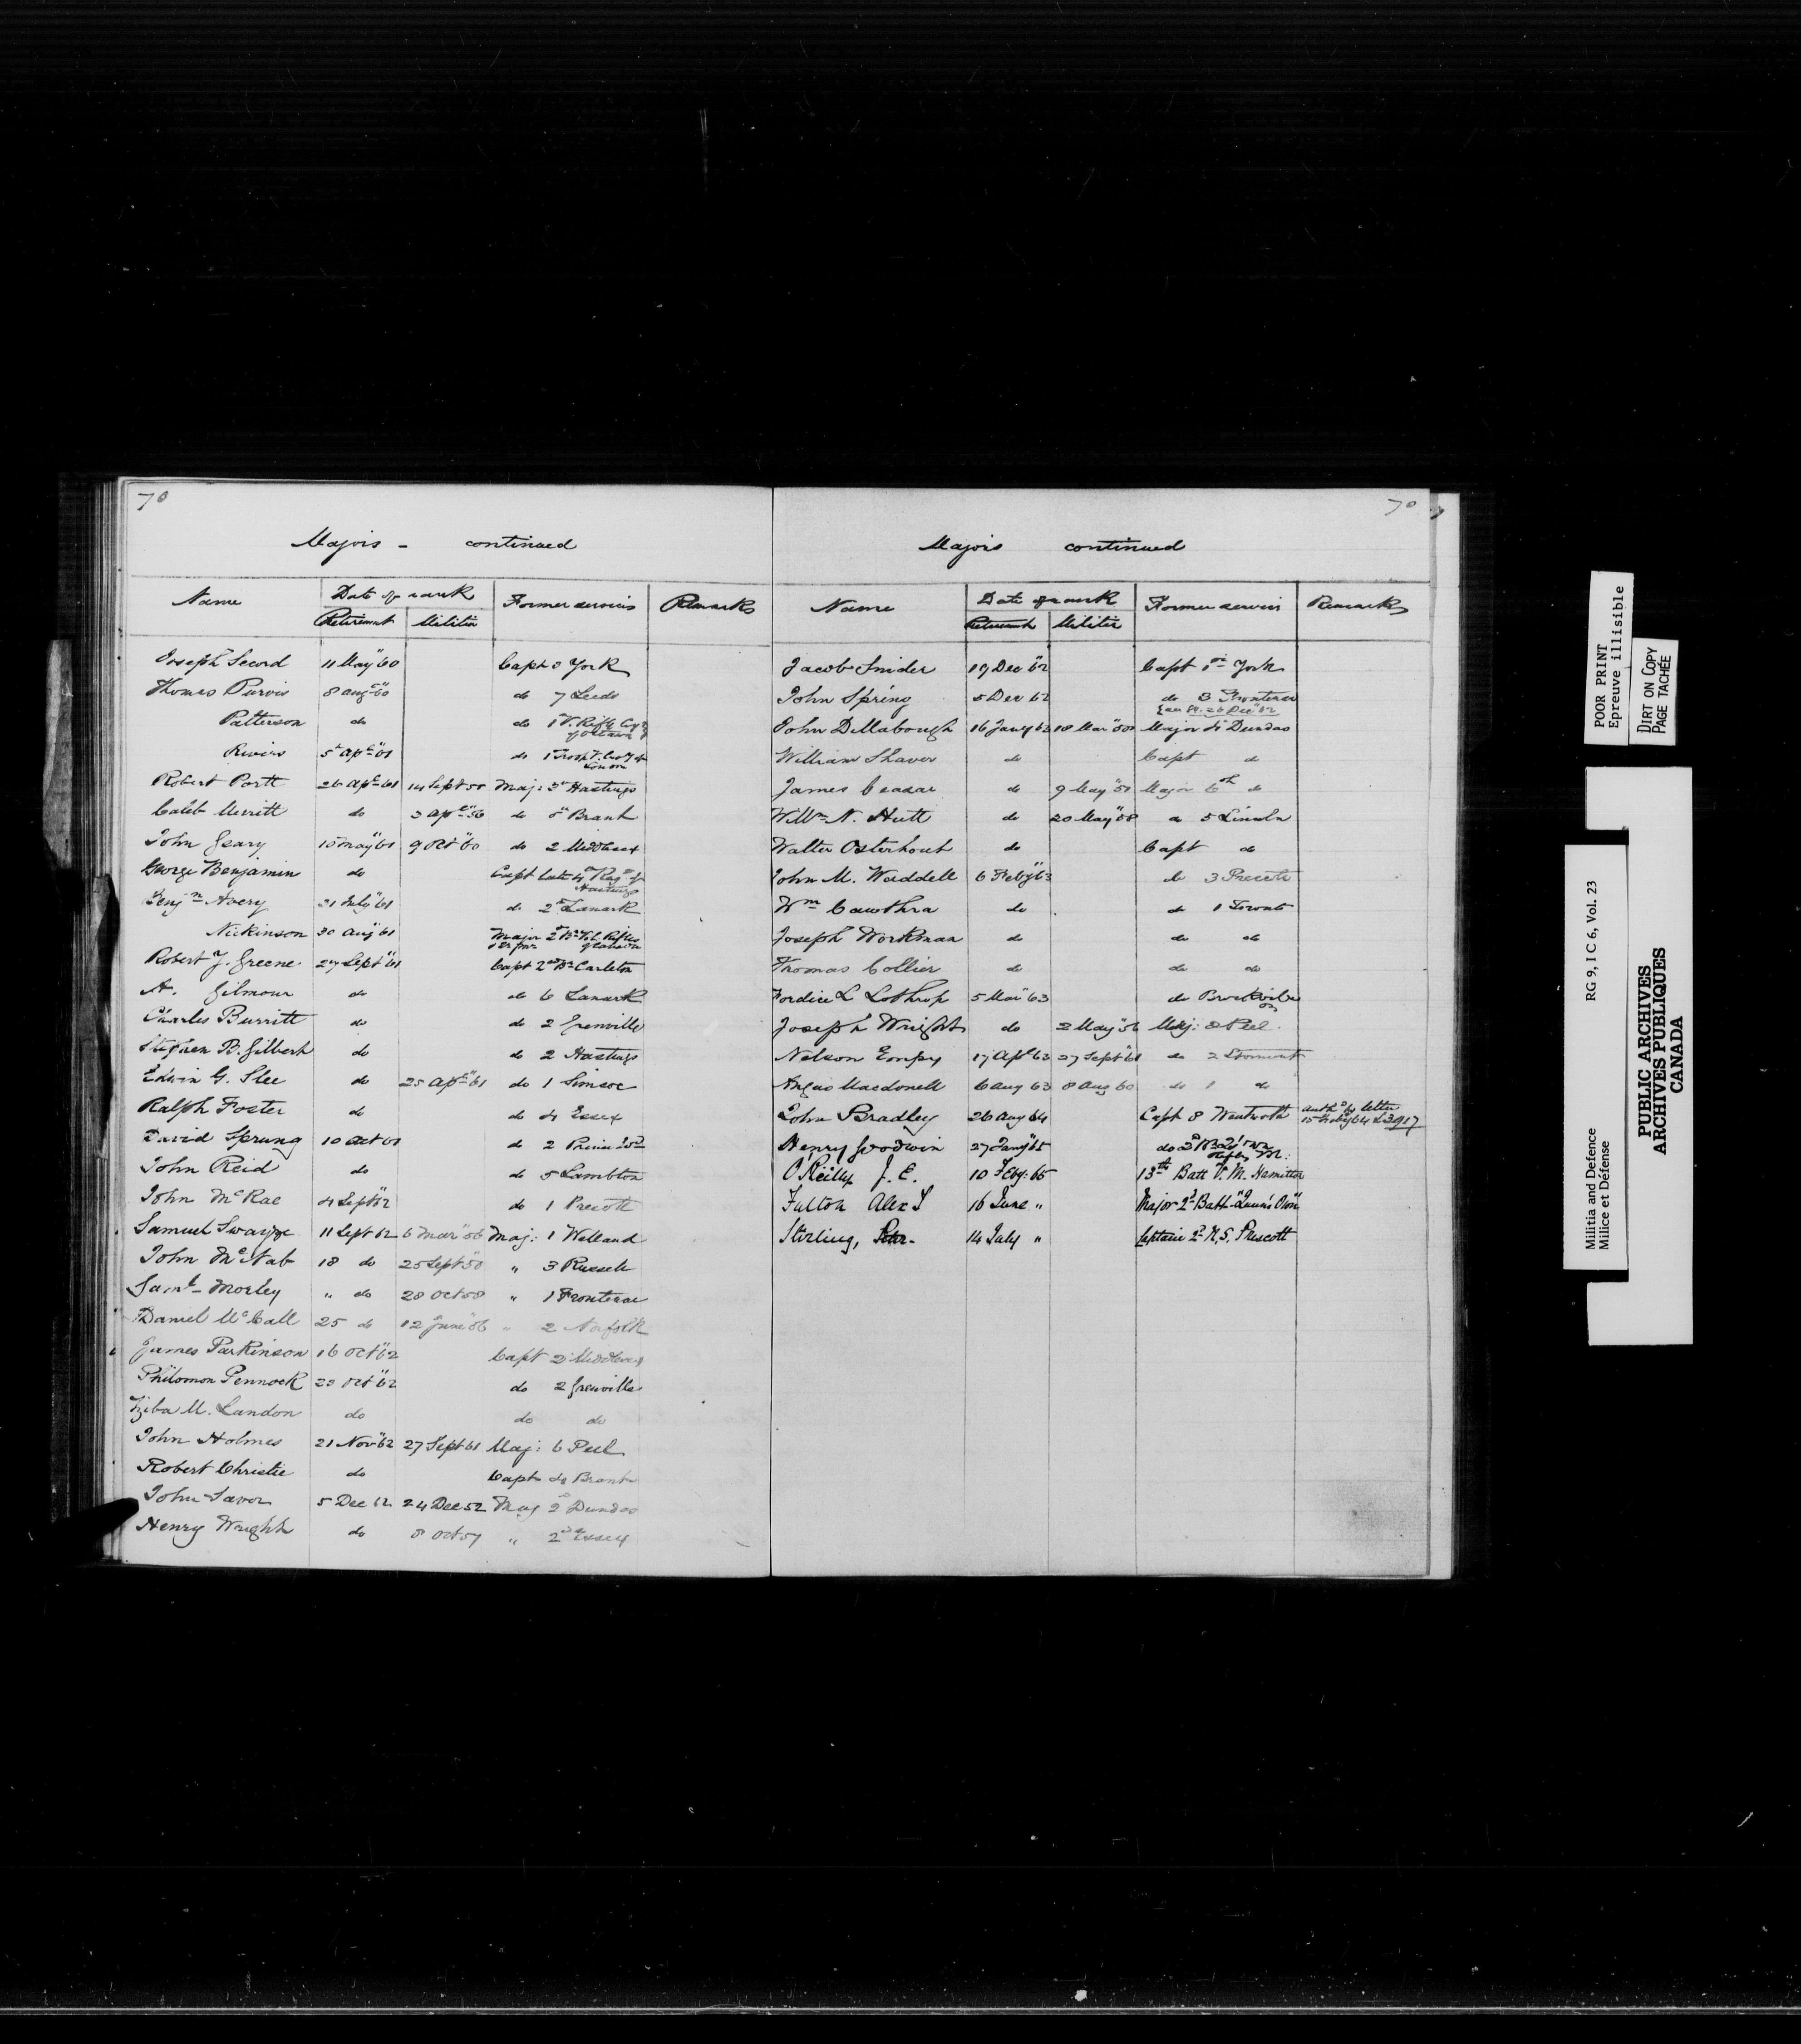 70
Majors - continued
Name Date of rank Former services Remarks
Retirement Militia
Joseph Secord 11 May "60 Capt 8 York
Thomas Purvis 8 Aug "60 do 7 Leeds
Patterson do do 1 V. Rifle Coy of Ottawa
Rivers 5 Apl "61 do 1 Troop V. Cavy of London
Robert Portt 26 Apl 61 14 Sept 55 Maj: 3 Hastings
Caleb Merritt do 3 Apl "56 do 5 Brant
John Geary 10 May "61 9 Oct "60 do 2 Middlesex
George Benjamin do Capt late 4 Regt of Hastings
Benjn Avery 21 July "61 do 2 Lanark
Nickinson 30 Aug "61 Major 2 Bn Vol. Rifles of Canada
Robert J. Greene 27 Sept "61 Capt 2nd Bn Carleton
A. Gilmour do do 6 Lanark
Charles Burritt do do 2 Grenville
Stephen B. Gilbert do do 2 Hastings
Edwin G. Slee do 25 Apl "61 do 1 Simcoe
Ralph Foster do do 4 Essex
David Sprung 10 Oct 61 do 2 Prince Ed
John Reid do do 5 Lambton
John McRae 4 Sept "62 do 1 Prescott
Samuel Swayze 11 Sept 62 6 Mar "56 Maj: 1 Welland
John McNab 18 do 25 Sept "50 " 3 Russell
Saml Morley " do 28 Oct 58 " 1 Frontenac
Daniel McCall 25 do 12 June "56 " 2 Norfolk
James Parkinson 16 Oct "62 Capt 2 Middlesex
Philomon Pennock 23 Oct "62 do 2 Grenville
Ziba M. Landon do do do
John Holmes 21 Nov "62 27 Sept 61 Maj: 6 Peel
Robert Christie do Capt do Brant
John Saver 5 Dec 62 24 Dec 52 Maj 2 Dundas
Henry Wright do 8 Oct 57 " 2nd Essex
70
Majors continued
Name Date of rank Former services Remarks
Retirement Militia
Jacob Snider 19 Dec "62 Capt 1st York
John Spring 5 Dec 62 do 3 Frontenac
26 Dec "62
John Dillabough 16 Jany 63 18 Mar "58 Major 4 Dundas
William Shaver do Capt do
James Ceasar do 9 May "51 Major 6th do
Willm N. Hutt do 20 May "58 do 5 Lincoln
Walter Osterhout do Capt do
John M. Waddell 6 Feby "63 do 3 Prescott
Wm Cawthra do do 1 Toronto
Joseph Workman do do do
Thomas Collier do do do
Fordice L Lothrop 5 Mar "63 do Brockville
Joseph Wright do 2 May "56 Maj: 8 Peel.
Nelson Empy 17 Apl 63 27 Sept "61 do 2 Stormont
Angus Macdonell 6 Aug 63 8 Aug 60 do 1 do
John Bradley 26 Aug 64 Capt 8 Wentworth Authd by letter
Henry Goodwin 27 Jany "65 do
O'Reilly J. E. 10 Feby: 65 13th Batt V. M. Hamilton
Fulton Alex T 16 June " Major 2d Batt "Queen's Own"
Stirling, 14 July " Captain 2d N, S, Prescott
POOR PRINT
Epreuve illisible
DIRT ON COPY
PAGE TACHÉE
RG 9, I C 6, Vol. 23
Militia and Defence
Milice et Défense
PUBLIC ARCHIVES
ARCHIVES PUBLIQUES
CANADA